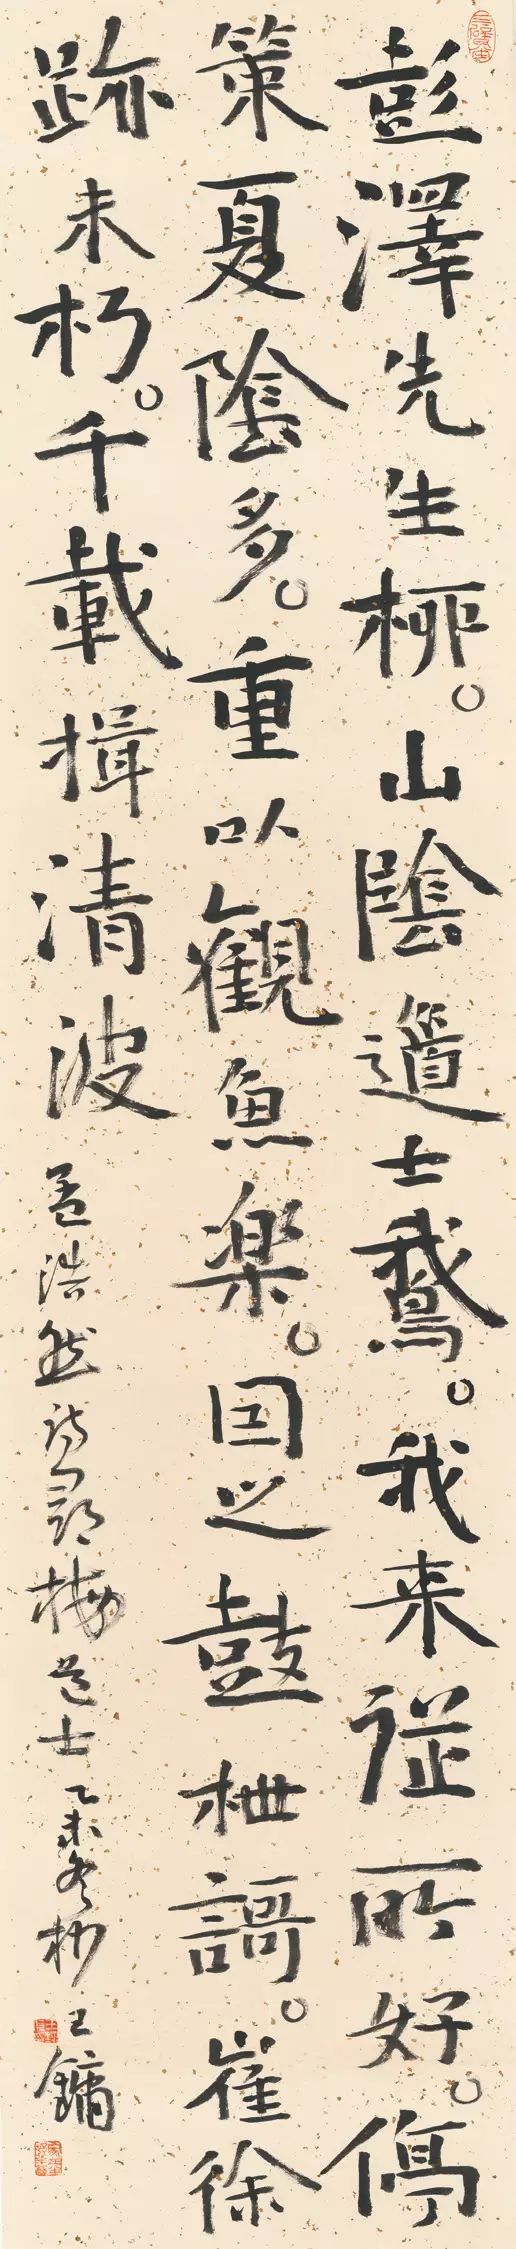 彭澤先生柳。山陰道士鵞。我来從所好。停
策夏陰多。重以觀魚樂。因之鼓枻謌。崔徐
跡未朽。千載揖清波
孟浩然詩尋梅道士 乙未冬杪 王鏞